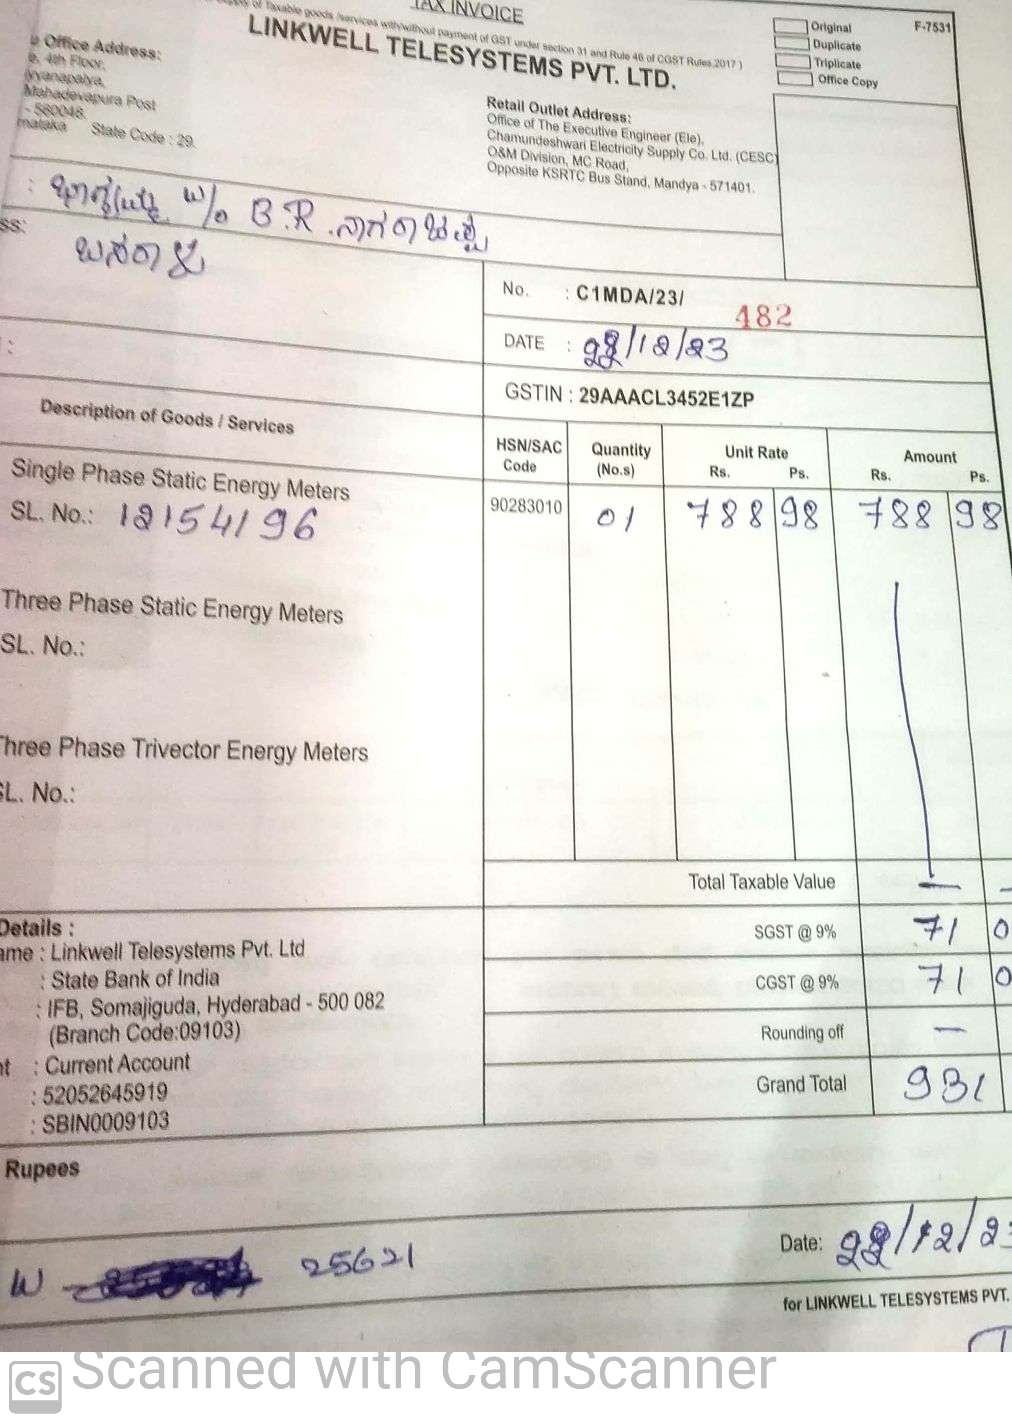 TAX INVOICE
of Taxable goods /services with/without payment of GST under section 31 and Rule 46 of CGST Rules 2017 )
LINKWELL TELESYSTEMS PVT. LTD.
Original
Duplicate
Triplicate
Office Copy
F-7531
Office Address:
4th Floor,
Mahadevapura Post
- 560048.
State Code : 29.
Retail Outlet Address:
Office of The Executive Engineer (Ele),
Chamundeshwari Electricity Supply Co. Ltd. (CESC)
O&M Division, MC Road,
Opposite KSRTC Bus Stand, Mandya - 571401.
: ಭಾಗ್ಯಮ್ಮ W/o B.R. ನಾಗರಾಜಪ್ಪ
ss:
No. : C1MDA/23/ 482
DATE : 22/12/23
GSTIN : 29AAACL3452E1ZP
Description of Goods / Services
HSN/SAC Code
Quantity (No.s)
Unit Rate
Rs. Ps.
Amount
Rs. Ps.
Single Phase Static Energy Meters
SL. No.: 12154196
90283010 01 788 98 788 98
Three Phase Static Energy Meters
SL. No.:
Three Phase Trivector Energy Meters
SL. No.:
Total Taxable Value —
SGST @ 9% 71 0
CGST @ 9% 71 0
Rounding off —
Grand Total 931
Details :
ame : Linkwell Telesystems Pvt. Ltd
: State Bank of India
: IFB, Somajiguda, Hyderabad - 500 082
(Branch Code:09103)
nt : Current Account
: 52052645919
: SBIN0009103
Rupees
W 25621
Date: 22/12/23
for LINKWELL TELESYSTEMS PVT.
CS Scanned with CamScanner